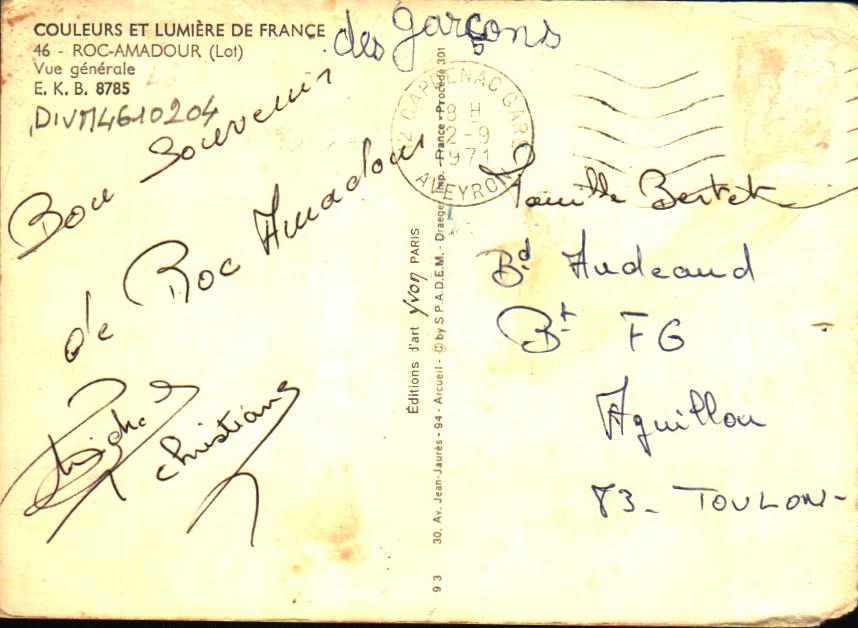 COULEURS ET LUMIÈRE DE FRANCE
46 - ROC-AMADOUR (Lot)
Vue générale
E. K. B. 8785
DIVM4610204
des garçons
Bon Souvenir
de Roc Amadour
Christiane
12 CAPDENAC GARE
18 H
2-9
1971
AVEYRON
Éditions d'art yvon PARIS
93 30, Av. Jean-Jaurès - 94 - Arcueil - © by S.P.A.D.E.M. - Draeger, Imp. - France - Procédé 301
Famille Bertet
Bd Audeaud
Bt FG
Aguillon
83 - TOULON -